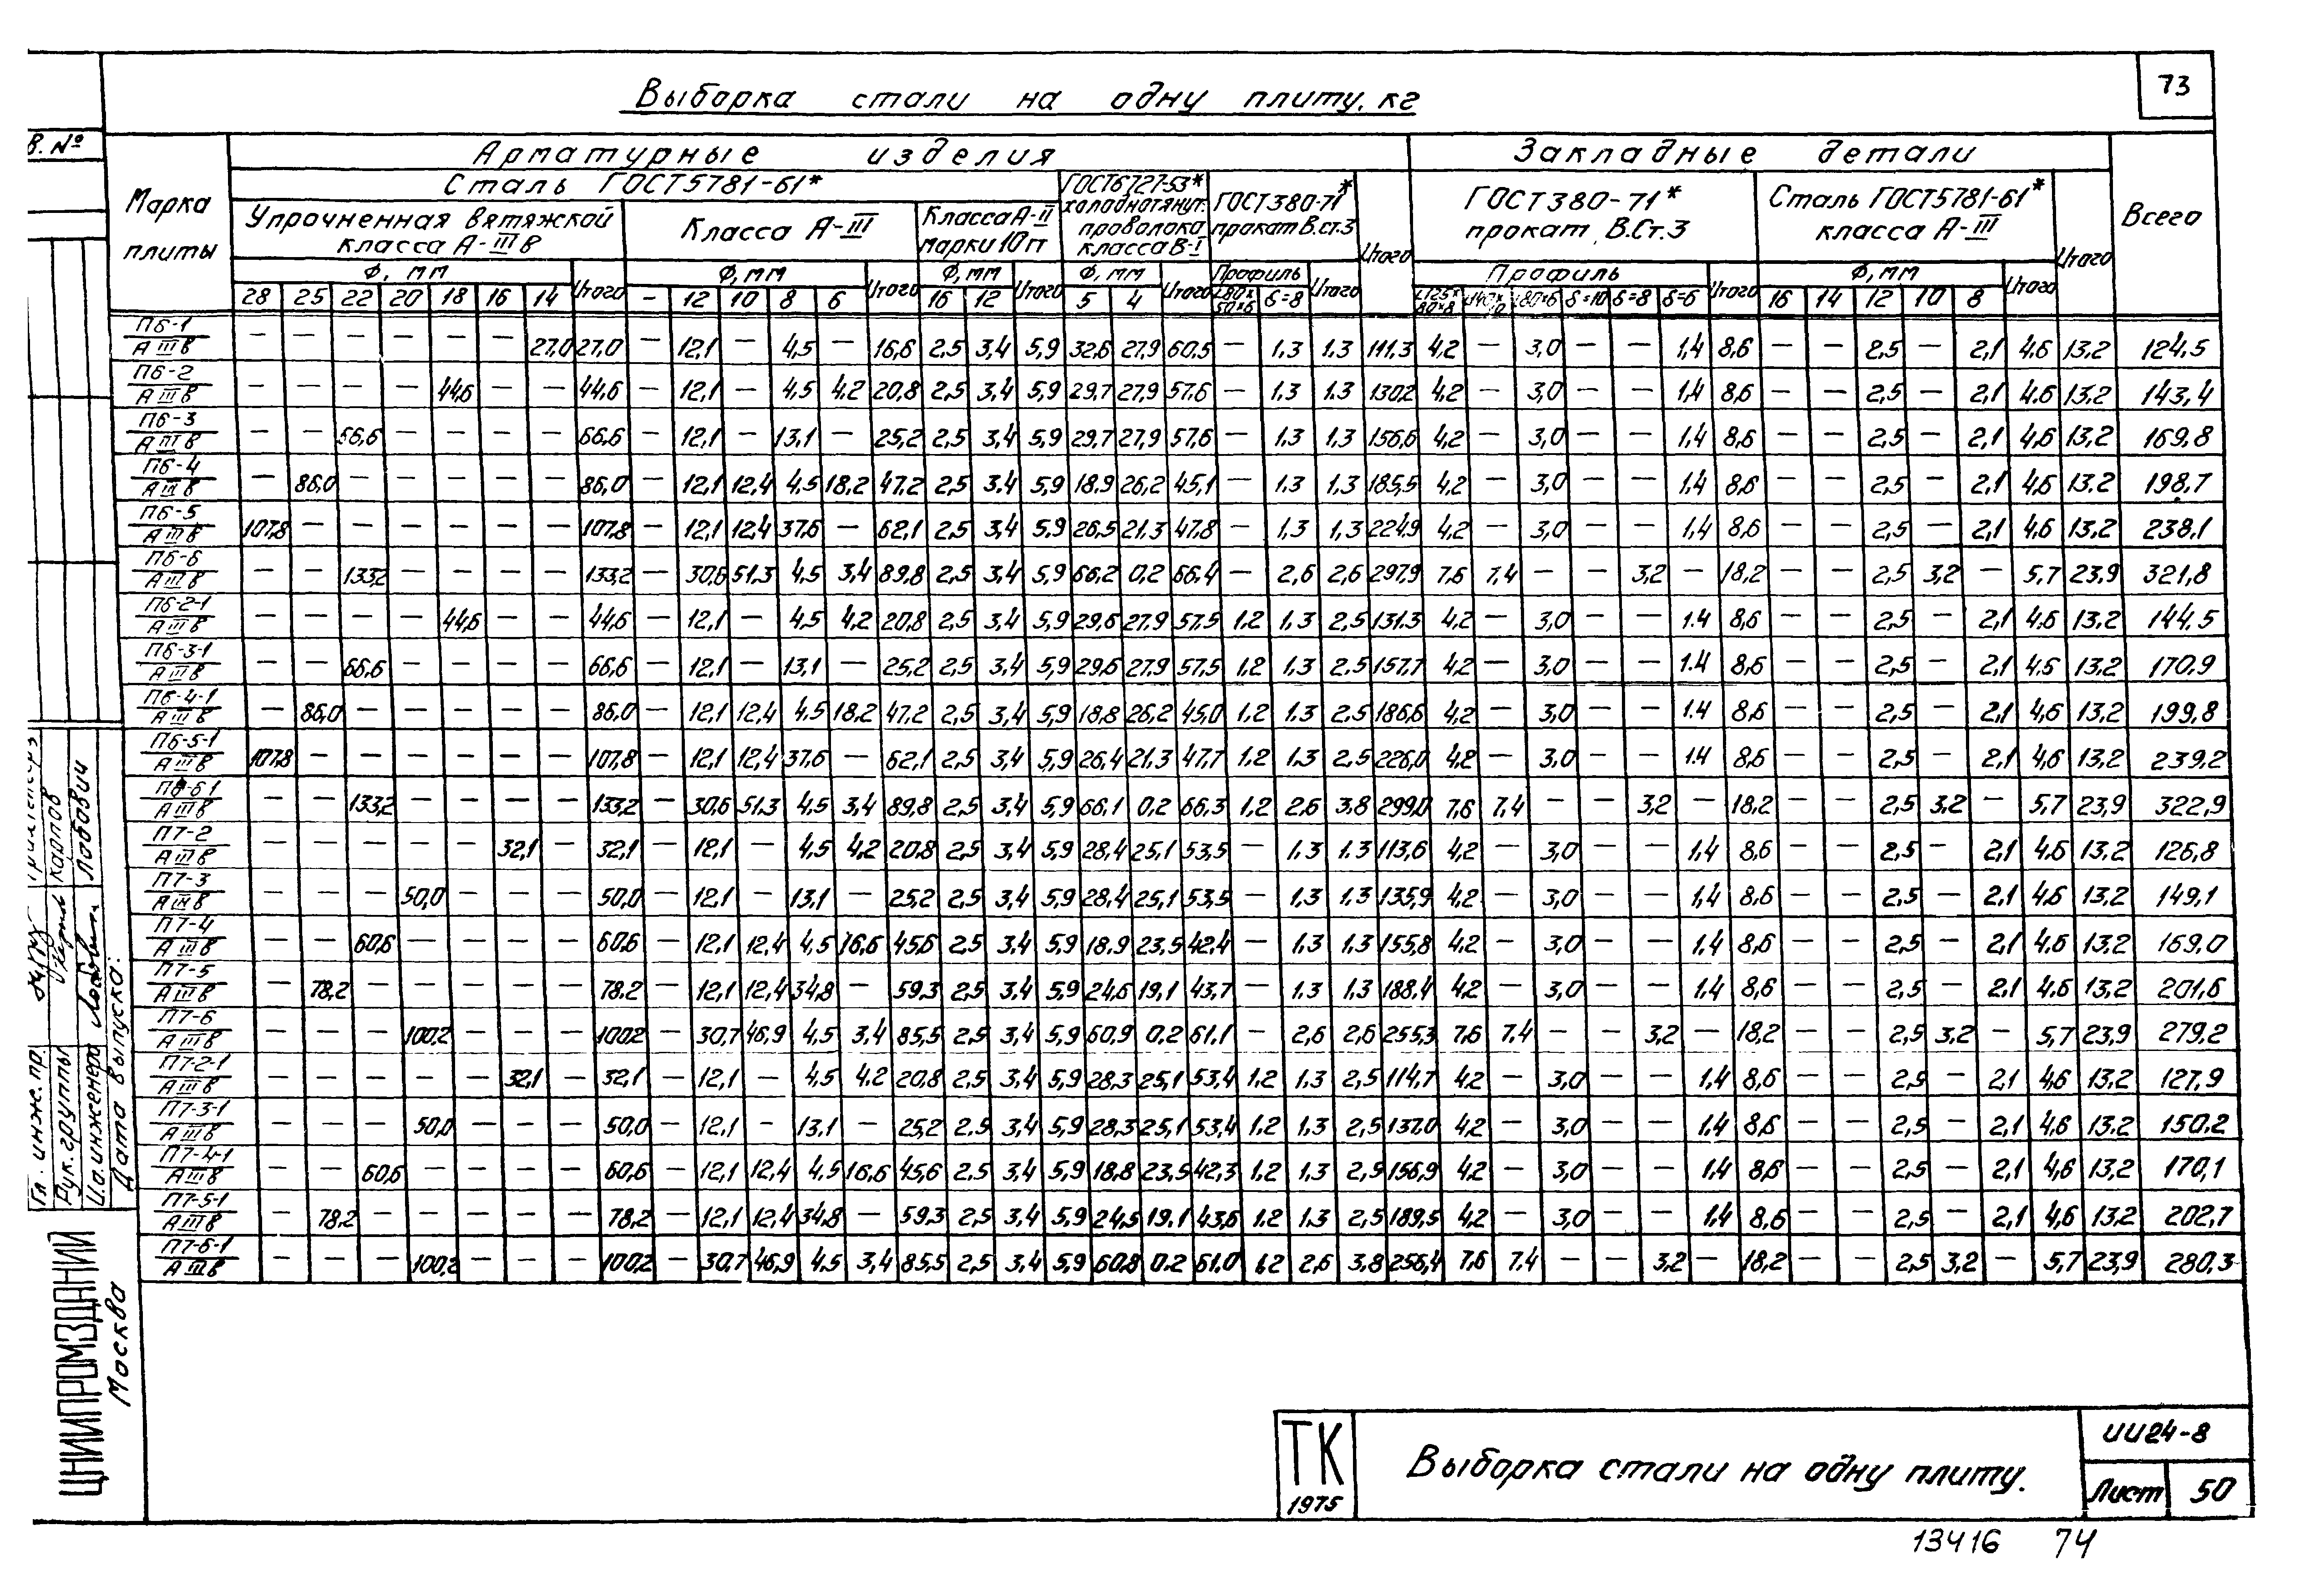 73
Выборка стали на одну плиту, кг
В. №
Марка плиты
Арматурные изделия
Закладные детали
Всего
Сталь ГОСТ 5781-61*
ГОСТ 6727-53* холоднотянут. проволока класса В-I
ГОСТ 380-71* прокат В.ст.3
Итого
ГОСТ 380-71* прокат В.Ст.3
Сталь ГОСТ 5781-61* класса А-III
Итого
Упрочненная вытяжкой класса А-IIIв
Класса А-III
Класса А-II марки 10ГТ
Ф, мм Итого Ф, мм Итого Ф, мм Итого Ф, мм Итого Профиль Итого Профиль Итого Ф, мм Итого
28 25 22 20 18 16 14 - 12 10 8 6 16 12 5 4 L80×50×6 δ=8 L125×80×8 δ=10 δ=8 δ=6 16 14 12 10 8
П6-1 АIIIв — — — — — — 27,0 27,0 — 12,1 — 4,5 — 16,6 2,5 3,4 5,9 32,6 27,9 60,5 — 1,3 1,3 111,3 4,2 — 3,0 — — 1,4 8,6 — — 2,5 — 2,1 4,6 13,2 124,5
П6-2 АIIIв — — — — 44,6 — — 44,6 — 12,1 — 4,5 4,2 20,8 2,5 3,4 5,9 29,7 27,9 57,6 — 1,3 1,3 130,2 4,2 — 3,0 — — 1,4 8,6 — — 2,5 — 2,1 4,6 13,2 143,4
П6-3 АIIIв — — 66,6 — — — — 66,6 — 12,1 — 13,1 — 25,2 2,5 3,4 5,9 29,7 27,9 57,6 — 1,3 1,3 156,6 4,2 — 3,0 — — 1,4 8,6 — — 2,5 — 2,1 4,6 13,2 169,8
П6-4 АIIIв — 86,0 — — — — — 86,0 — 12,1 12,4 4,5 18,2 47,2 2,5 3,4 5,9 18,9 26,2 45,1 — 1,3 1,3 185,5 4,2 — 3,0 — — 1,4 8,6 — — 2,5 — 2,1 4,6 13,2 198,7
П6-5 АIIIв 107,8 — — — — — — 107,8 — 12,1 12,4 37,6 — 62,1 2,5 3,4 5,9 26,5 21,3 47,8 — 1,3 1,3 224,9 4,2 — 3,0 — — 1,4 8,6 — — 2,5 — 2,1 4,6 13,2 238,1
П6-6 АIIIв — — 133,2 — — — — 133,2 — 30,6 51,3 4,5 3,4 89,8 2,5 3,4 5,9 66,2 0,2 66,4 — 2,6 2,6 297,9 7,6 7,4 — — 3,2 — 18,2 — — 2,5 3,2 — 5,7 23,9 321,8
П6-2-1 АIIIв — — — — 44,6 — — 44,6 — 12,1 — 4,5 4,2 20,8 2,5 3,4 5,9 29,6 27,9 57,5 1,2 1,3 2,5 131,3 4,2 — 3,0 — — 1,4 8,6 — — 2,5 — 2,1 4,6 13,2 144,5
П6-3-1 АIIIв — — 66,6 — — — — 66,6 — 12,1 — 13,1 — 25,2 2,5 3,4 5,9 29,6 27,9 57,5 1,2 1,3 2,5 157,7 4,2 — 3,0 — — 1,4 8,6 — — 2,5 — 2,1 4,6 13,2 170,9
П6-4-1 АIIIв — 86,0 — — — — — 86,0 — 12,1 12,4 4,5 18,2 47,2 2,5 3,4 5,9 18,8 26,2 45,0 1,2 1,3 2,5 186,6 4,2 — 3,0 — — 1,4 8,6 — — 2,5 — 2,1 4,6 13,2 199,8
П6-5-1 АIIIв 107,8 — — — — — — 107,8 — 12,1 12,4 37,6 — 62,1 2,5 3,4 5,9 26,4 21,3 47,7 1,2 1,3 2,5 226,0 4,2 — 3,0 — — 1,4 8,6 — — 2,5 — 2,1 4,6 13,2 239,2
П6-6-1 АIIIв — — 133,2 — — — — 133,2 — 30,6 51,3 4,5 3,4 89,8 2,5 3,4 5,9 66,1 0,2 66,3 1,2 2,6 3,8 299,0 7,6 7,4 — — 3,2 — 18,2 — — 2,5 3,2 — 5,7 23,9 322,9
П7-2 АIIIв — — — — — 32,1 — 32,1 — 12,1 — 4,5 4,2 20,8 2,5 3,4 5,9 28,4 25,1 53,5 — 1,3 1,3 113,6 4,2 — 3,0 — — 1,4 8,6 — — 2,5 — 2,1 4,6 13,2 126,8
П7-3 АIIIв — — — 50,0 — — — 50,0 — 12,1 — 13,1 — 25,2 2,5 3,4 5,9 28,4 25,1 53,5 — 1,3 1,3 135,9 4,2 — 3,0 — — 1,4 8,6 — — 2,5 — 2,1 4,6 13,2 149,1
П7-4 АIIIв — — 60,6 — — — — 60,6 — 12,1 12,4 4,5 16,6 45,6 2,5 3,4 5,9 18,9 23,5 42,4 — 1,3 1,3 155,8 4,2 — 3,0 — — 1,4 8,6 — — 2,5 — 2,1 4,6 13,2 169,0
П7-5 АIIIв — 78,2 — — — — — 78,2 — 12,1 12,4 34,8 — 59,3 2,5 3,4 5,9 24,6 19,1 43,7 — 1,3 1,3 188,4 4,2 — 3,0 — — 1,4 8,6 — — 2,5 — 2,1 4,6 13,2 201,6
П7-6 АIIIв — — — 100,2 — — — 100,2 — 30,7 46,9 4,5 3,4 85,5 2,5 3,4 5,9 60,9 0,2 61,1 — 2,6 2,6 255,3 7,6 7,4 — — 3,2 — 18,2 — — 2,5 3,2 — 5,7 23,9 279,2
П7-2-1 АIIIв — — — — — 32,1 — 32,1 — 12,1 — 4,5 4,2 20,8 2,5 3,4 5,9 28,3 25,1 53,4 1,2 1,3 2,5 114,7 4,2 — 3,0 — — 1,4 8,6 — — 2,5 — 2,1 4,6 13,2 127,9
П7-3-1 АIIIв — — — 50,0 — — — 50,0 — 12,1 — 13,1 — 25,2 2,5 3,4 5,9 28,3 25,1 53,4 1,2 1,3 2,5 137,0 4,2 — 3,0 — — 1,4 8,6 — — 2,5 — 2,1 4,6 13,2 150,2
П7-4-1 АIIIв — — 60,6 — — — — 60,6 — 12,1 12,4 4,5 16,6 45,6 2,5 3,4 5,9 18,8 23,5 42,3 1,2 1,3 2,5 156,9 4,2 — 3,0 — — 1,4 8,6 — — 2,5 — 2,1 4,6 13,2 170,1
П7-5-1 АIIIв — 78,2 — — — — — 78,2 — 12,1 12,4 34,8 — 59,3 2,5 3,4 5,9 24,5 19,1 43,6 1,2 1,3 2,5 189,5 4,2 — 3,0 — — 1,4 8,6 — — 2,5 — 2,1 4,6 13,2 202,7
П7-6-1 АIIIв — — — 100,2 — — — 100,2 — 30,7 46,9 4,5 3,4 85,5 2,5 3,4 5,9 60,8 0,2 61,0 1,2 2,6 3,8 256,4 7,6 7,4 — — 3,2 — 18,2 — — 2,5 3,2 — 5,7 23,9 280,3
Гл. инж. пр.
Рук. группы Карпов
И.о. инженера Лобович
Дата выпуска:
ЦНИИПРОМЗДАНИЙ
Москва
ТК
1975
Выборка стали на одну плиту.
ИИ24-8
Лист 50
13416 74